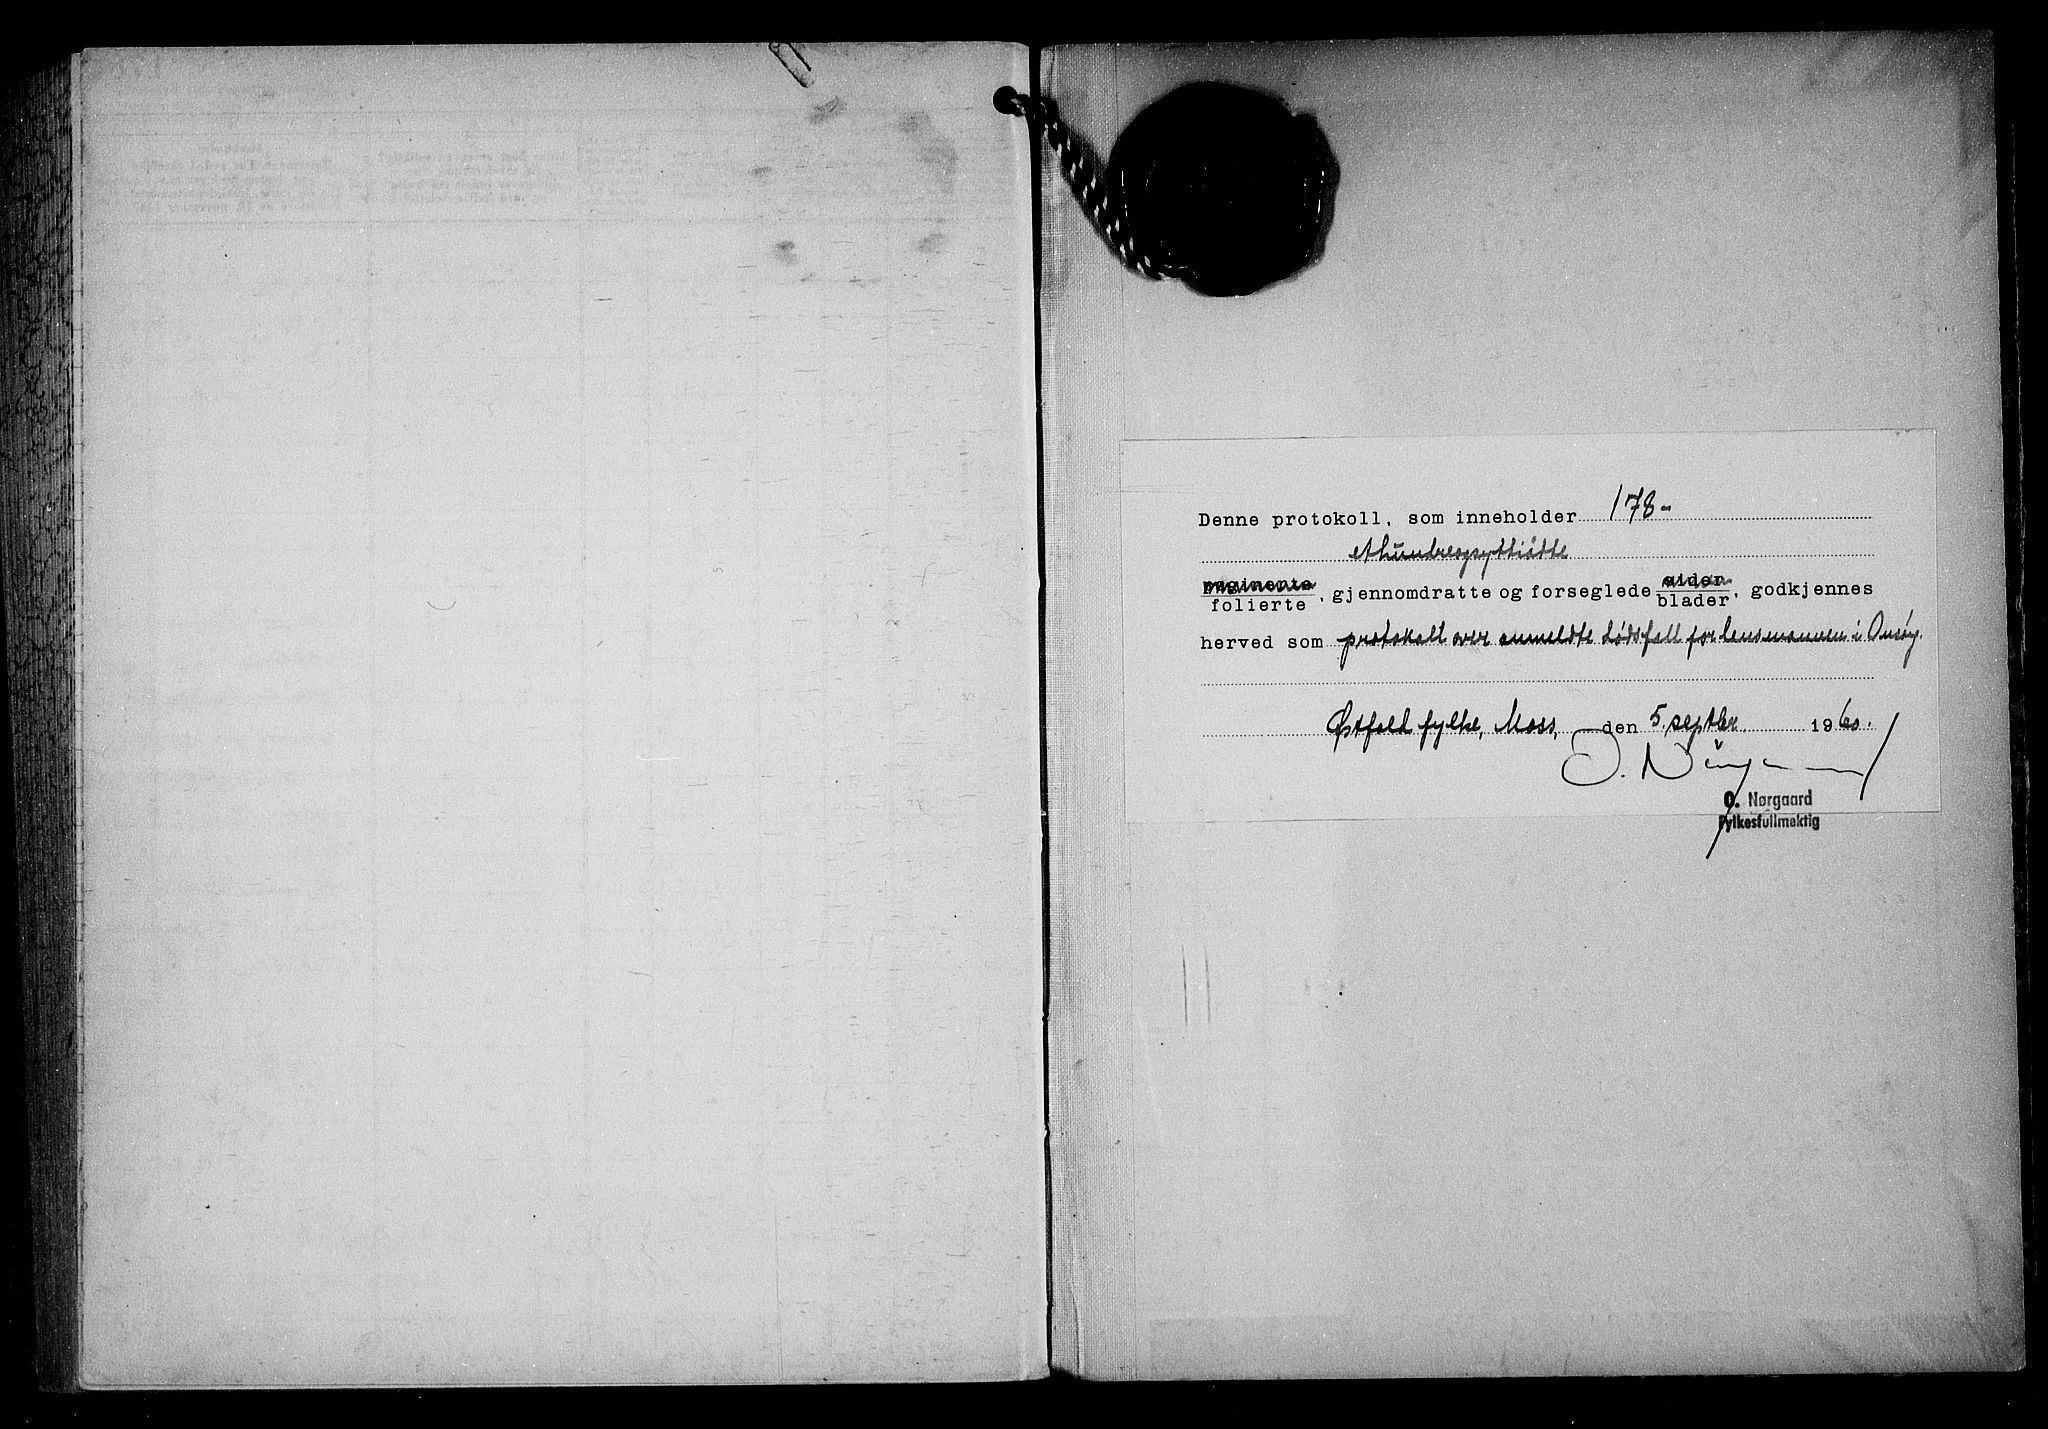 Denne protokoll, som inneholder 178-
etthundreogsyttiåtte
paginerte
folierte, gjennomdratte og forseglede sider
blader, godkjennes
herved som protokoll over anmeldte dødsfall for lensmannen i Onsøy.
Østfold fylke, Moss, den 5. septbr. 1960.
O. Nørgaard
O. Nørgaard
Fylkesfullmektig